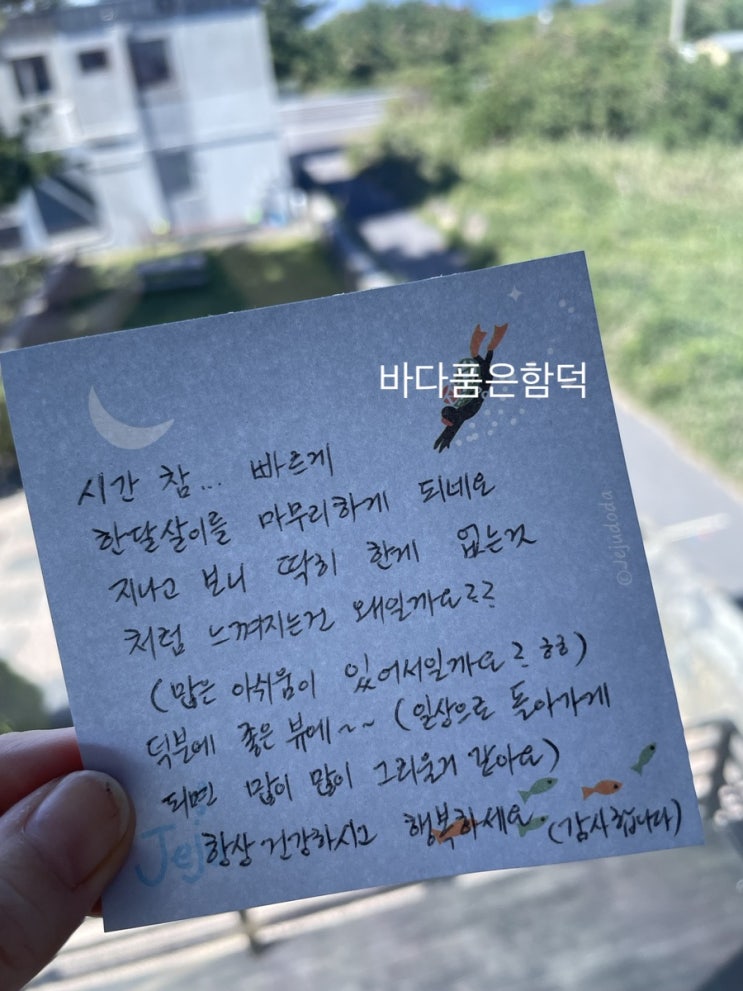 바다품은함덕
시간 참... 빠르게
한달살이를 마무리하게 되네요
지나고 보니 딱히 한게 없는것
처럼 느껴지는건 왜일까요??
(많은 아쉬움이 있어서일까요? ㅎㅎ)
덕분에 좋은 뷰에~~ (일상으로 돌아가게
되면 많이 많이 그리울거 같아요)
항상 건강하시고 행복하세요 (감사합니다)
©Jejudoda
Jej